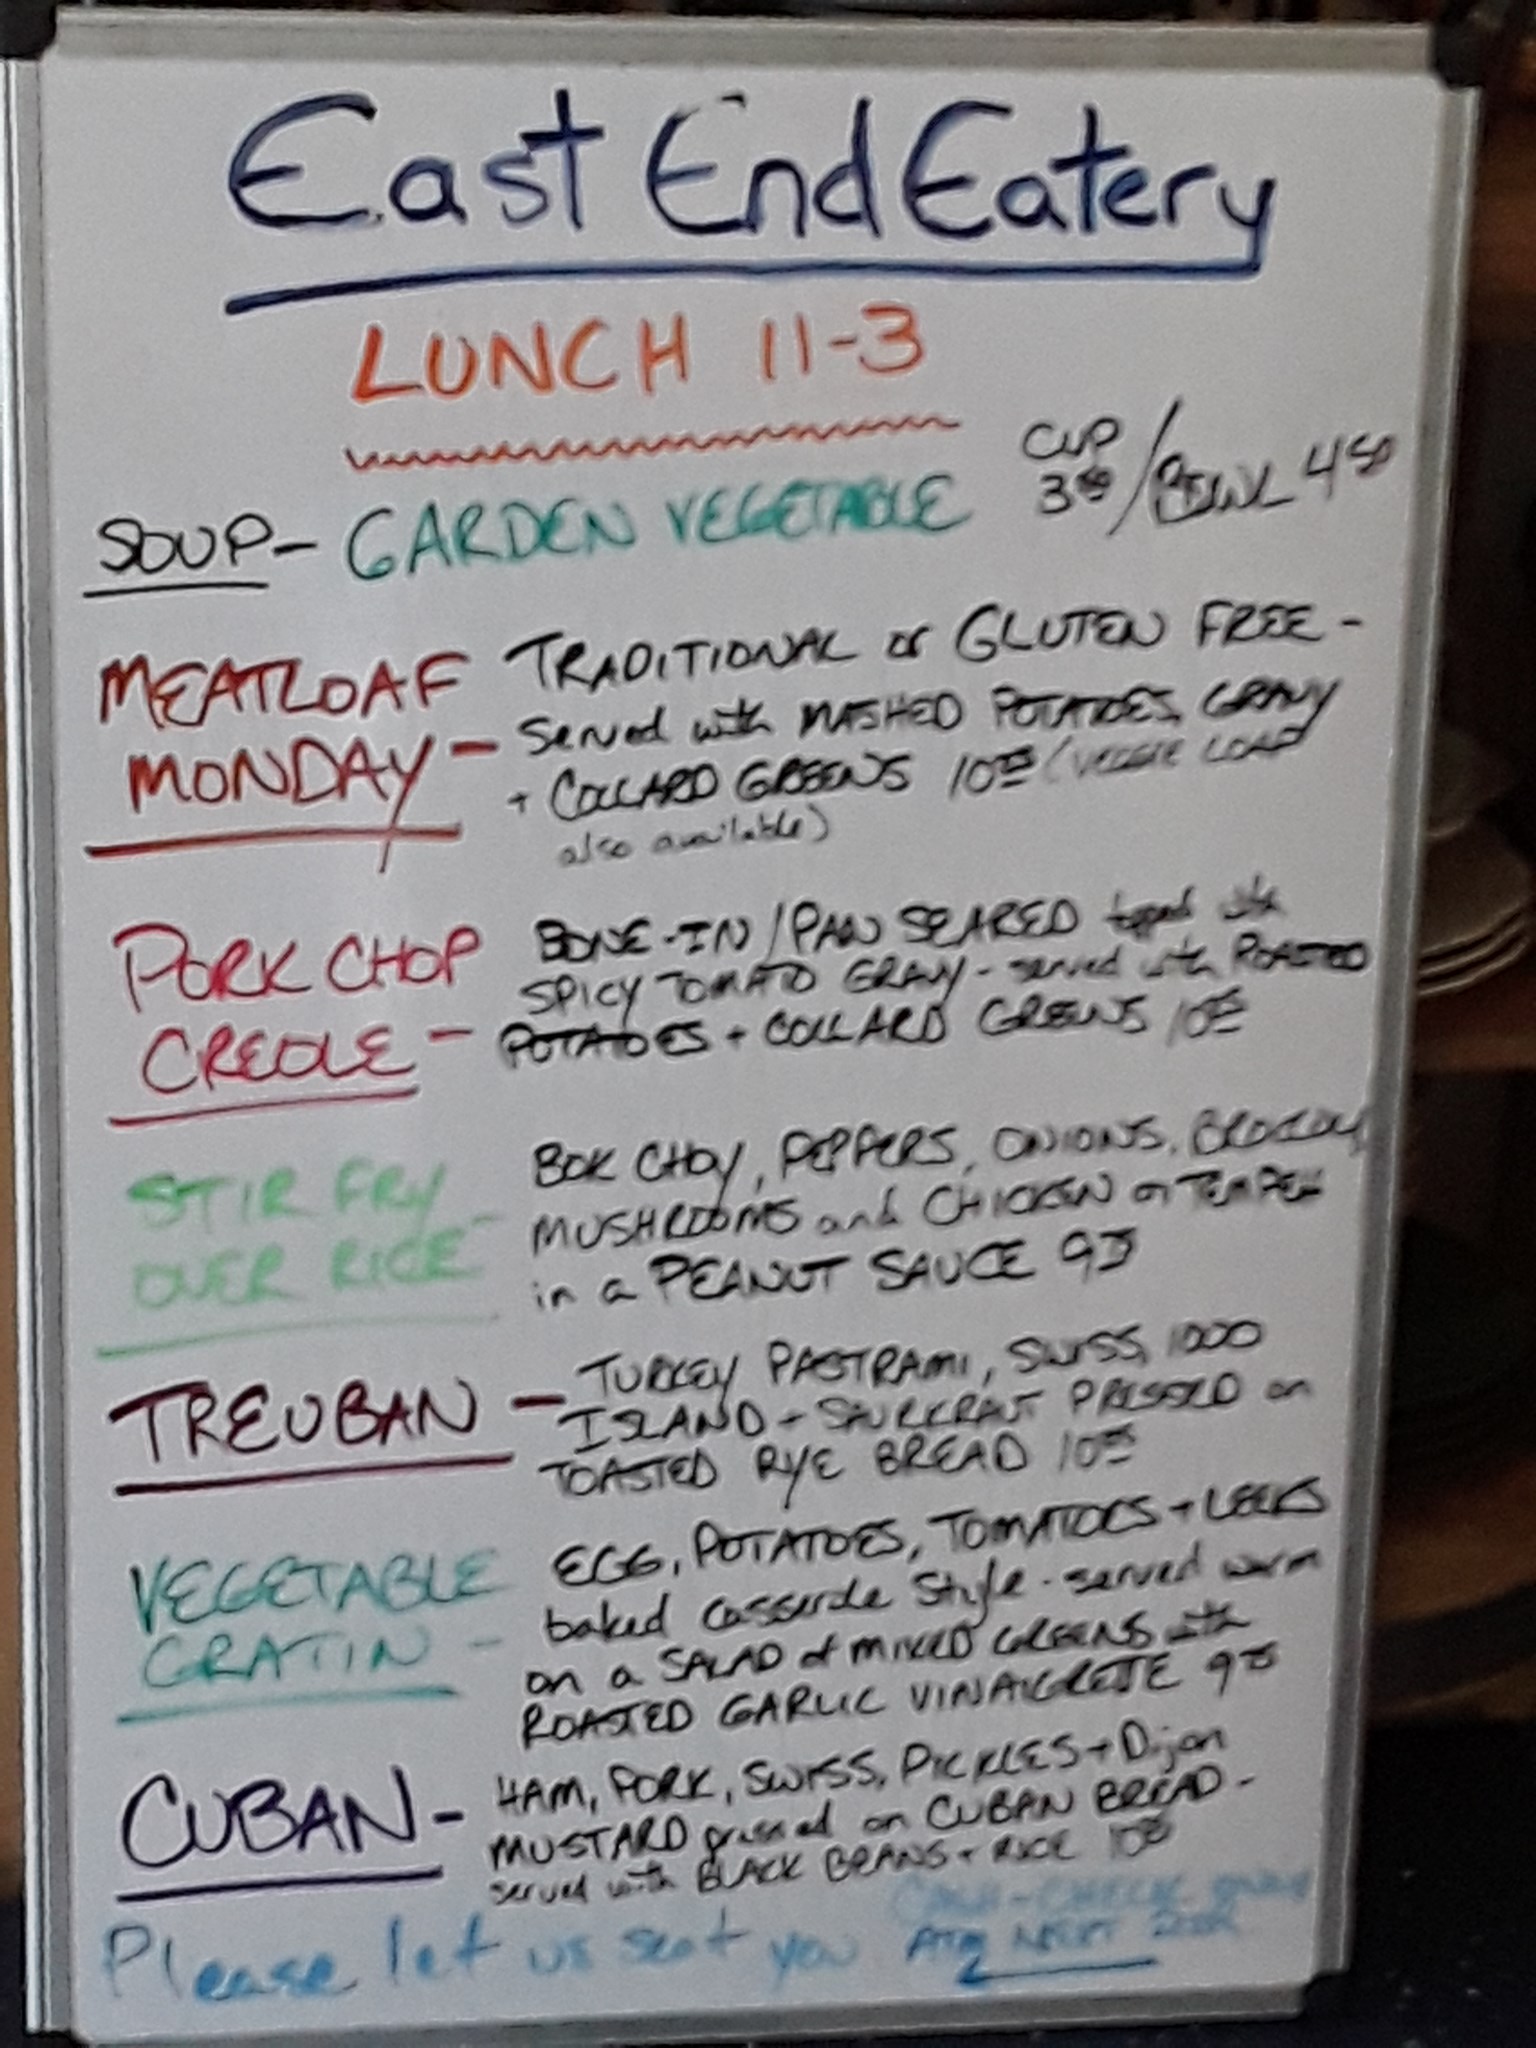 East End Eatery
LUNCH 11-3
CUP
SOUP - GARDEN VEGETABLE 3⁵⁰ / BOWL 4⁵⁰
MEATLOAF MONDAY - TRADITIONAL or GLUTEN FREE -
served with MASHED POTATOES, GRAVY
+ COLLARD GREENS 10⁷⁵ (VEGGIE LOAF
also available)
PORK CHOP CREOLE - BONE-IN / PAN SEARED topped with
SPICY TOMATO GRAVY - served with ROASTED
POTATOES + COLLARD GREENS
STIR FRY OVER RICE - BOK CHOY, PEPPERS, ONIONS, BROCCOLI,
MUSHROOMS and CHICKEN or TEMPEH
in a PEANUT SAUCE 9⁷⁵
TREUBAN - TURKEY PASTRAMI, SWISS, 1000
ISLAND + SAURKRAUT PRESSED on
TOASTED RYE BREAD
VEGETABLE GRATIN - EGG, POTATOES, TOMATOES + LEEKS
baked casserole style - served warm
on a SALAD of MIXED GREENS with
ROASTED GARLIC VINAIGRETTE 9⁷⁵
CUBAN - HAM, PORK, SWISS, PICKLES + Dijon
MUSTARD pressed on CUBAN BREAD -
served with BLACK BEANS + RICE
CASH - CHECK ONLY
Please let us seat you ATM NEXT DOOR